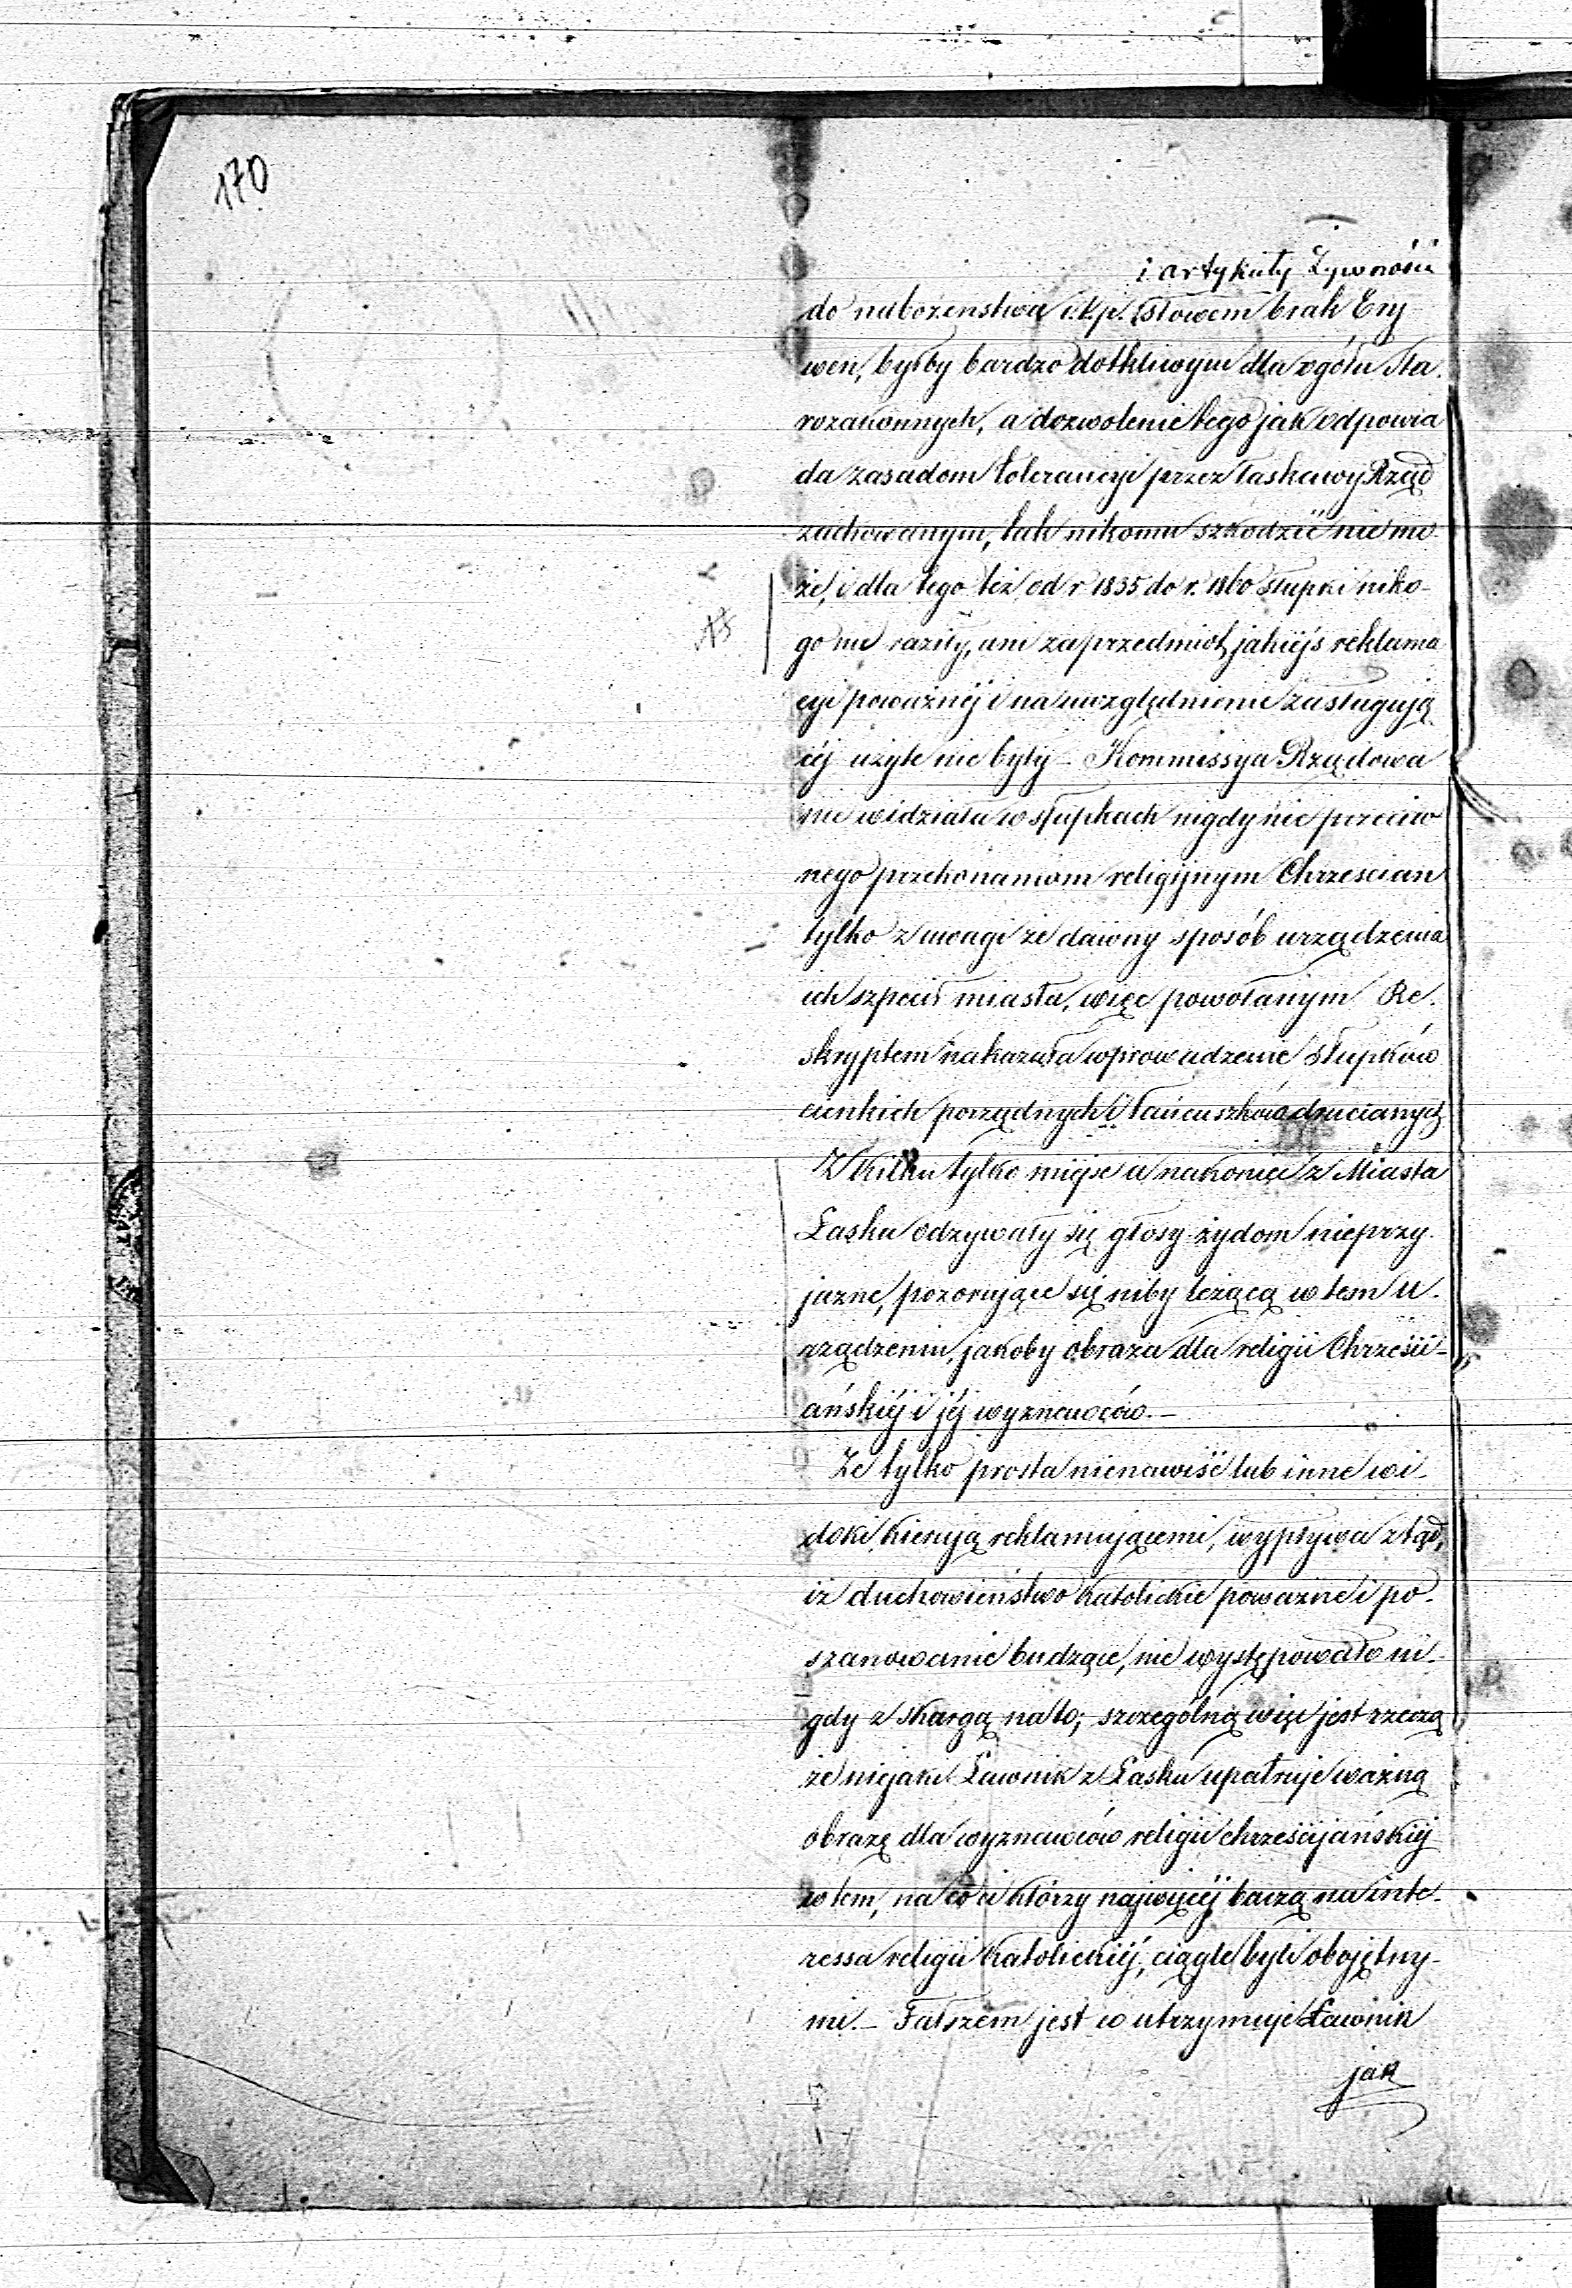 170
i artykuły Żywności
do nabożenstwa i.t.p. słowem brak Ery
wen, byłby bardzo dotkliwym dla ogółu Sta-
rozakonnych, a dozwolenie tego jak odpowia
da zasadom tolerancyi przez łaskawy Rząd
zachowanym, tak nikomu szkodzić nie mo
że, i dla tego też od r 1835 do r. 1860 słupki niko-
go nie raziły, ani za przedmiot jakiéjś reklama
cyi poważnéj i na uwzględnienie zasługują
céj użyte nie były – Kommissya Rządowa
nie widziała w słupkach nigdy nic przeciw
nego przekonaniom religijnym Chrzescian
tylko z uwagi że dawny sposób urządzenia
ich szpecił miasta, więc powołanym Re-
skryptem nakazała wprowadzenie słupków
cienkich porządnych i łańcuszków drucianych
Z kilku tylko miejsc a nakoniec z Miasta
Łasku odzywały się głosy żydom nieprzy-
jazne, pozorujące się niby leżącą w tem u-
rządzeniu, jakoby obraza dla religii Chrześci-
ańskiéj i jéj wyznawców.–
Że tylko prosta nienawiść lub inne wi-
doki kierują reklamującemi, wypływa ztąd,
iż duchowieństwo katolickie poważne i po-
szanowanie budzące, nie występowało ni-
gdy z skargą na to; szczególną więc jest rzeczą
że niejaki Ławnik z Łasku upatruje ważną
obrazę dla wyznawców religii chrześcijańskiéj
w tem, na co ci którzy najwięcéj baczą na inte-
ressa religii Katolickiéj, ciągle byli obojętny-
mi.– Fałszem jest co utrzymuje Ławnik
jak